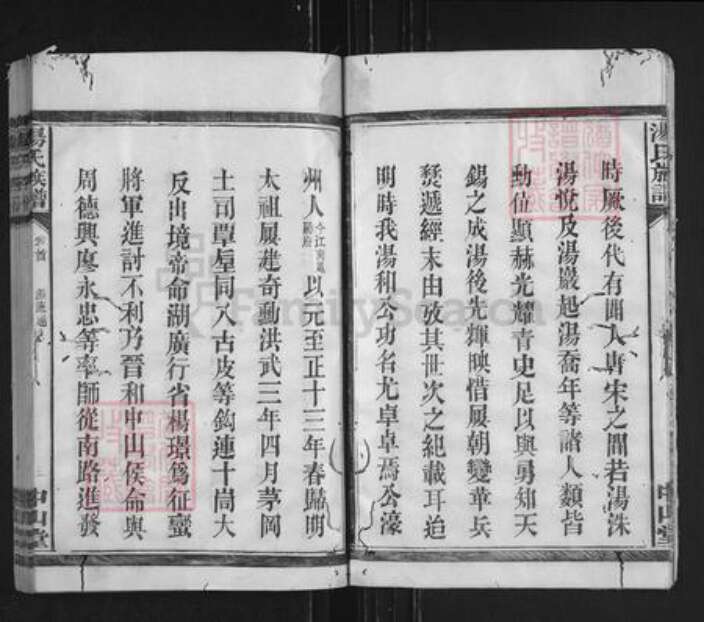 湯氏族譜
中山堂
時厥後代有聞人唐宋之間若湯洙
湯悅及湯巖起湯喬年等諸人類皆
動位顯赫光耀青史足以與勇知天
錫之成湯後先輝映惜屢朝變革兵
燹遞經末由攷其世次之紀載耳迨
明時我湯和公功名尤卓卓焉公濠
州人今江南鳳陽府以元至正十三年春歸明
太祖屢建奇勳洪武三年四月茅岡
土司覃垕同入古皮等鈎連十峝大
反出境帝命湖廣行省楊璟爲征蠻
將軍進討不利乃晉和中山侯命與
周德興廖永忠等率師從南路進發
湯氏族譜
卷首
中山堂
FamilySearch